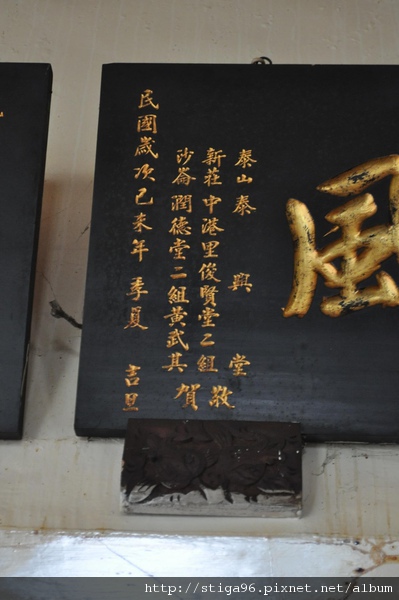 風
泰山泰興堂
新莊中港里俊賢堂二組
沙崙潤德堂二組黃武其
敬賀
民國歲次己未年季夏 吉旦
http://stiga96.pixnet.net/album